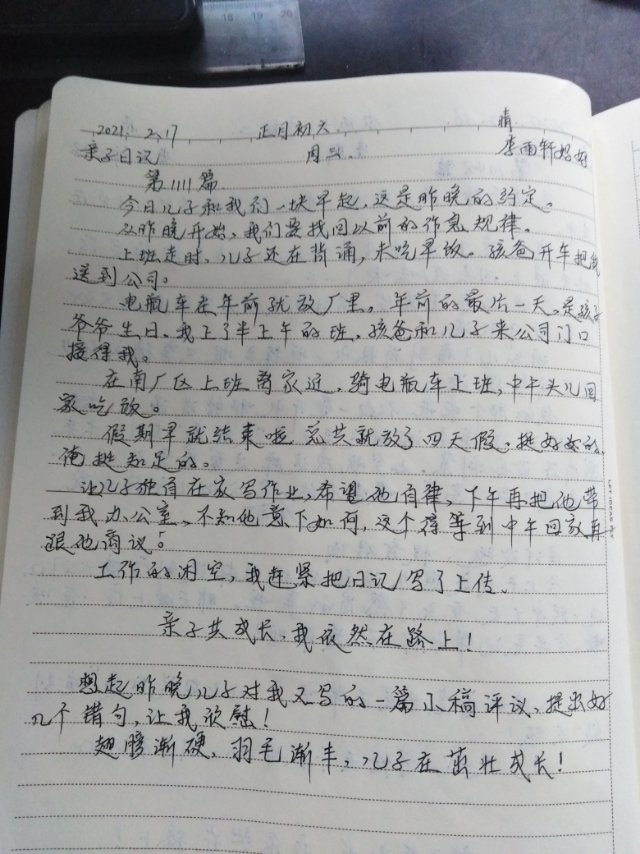 18 19 20
2021. 2.17 正月初六 晴
亲子日记 周三 李雨轩妈妈
第1111篇
今日儿子和我们一块早起,这是昨晚的约定。
从昨晚开始,我们要找回以前的作息规律。
上班走时,儿子还在背诵,未吃早饭。孩爸开车把我
送到公司。
电瓶车在年前就放厂里。年前的最后一天,是孩子
爷爷生日,我上了半上午的班,孩爸和儿子来公司门口
接得我。
在南厂区上班离家近,骑电瓶车上班,中午头儿回
家吃饭。
假期早就结束啦 总共就放了四天假。挺好好的,
俺挺知足的。
让儿子独自在家写作业,希望他自律,下午再把他带
到我办公室,不知他意下如何,这个得等到中午回家再
跟他商议!
工作的闲空,我赶紧把日记写了上传。
亲子共成长,我依然在路上!
想起昨晚儿子对我又写的一篇小稿评议,提出好
几个错句,让我欣慰!
翅膀渐硬,羽毛渐丰,儿子在茁壮成长!